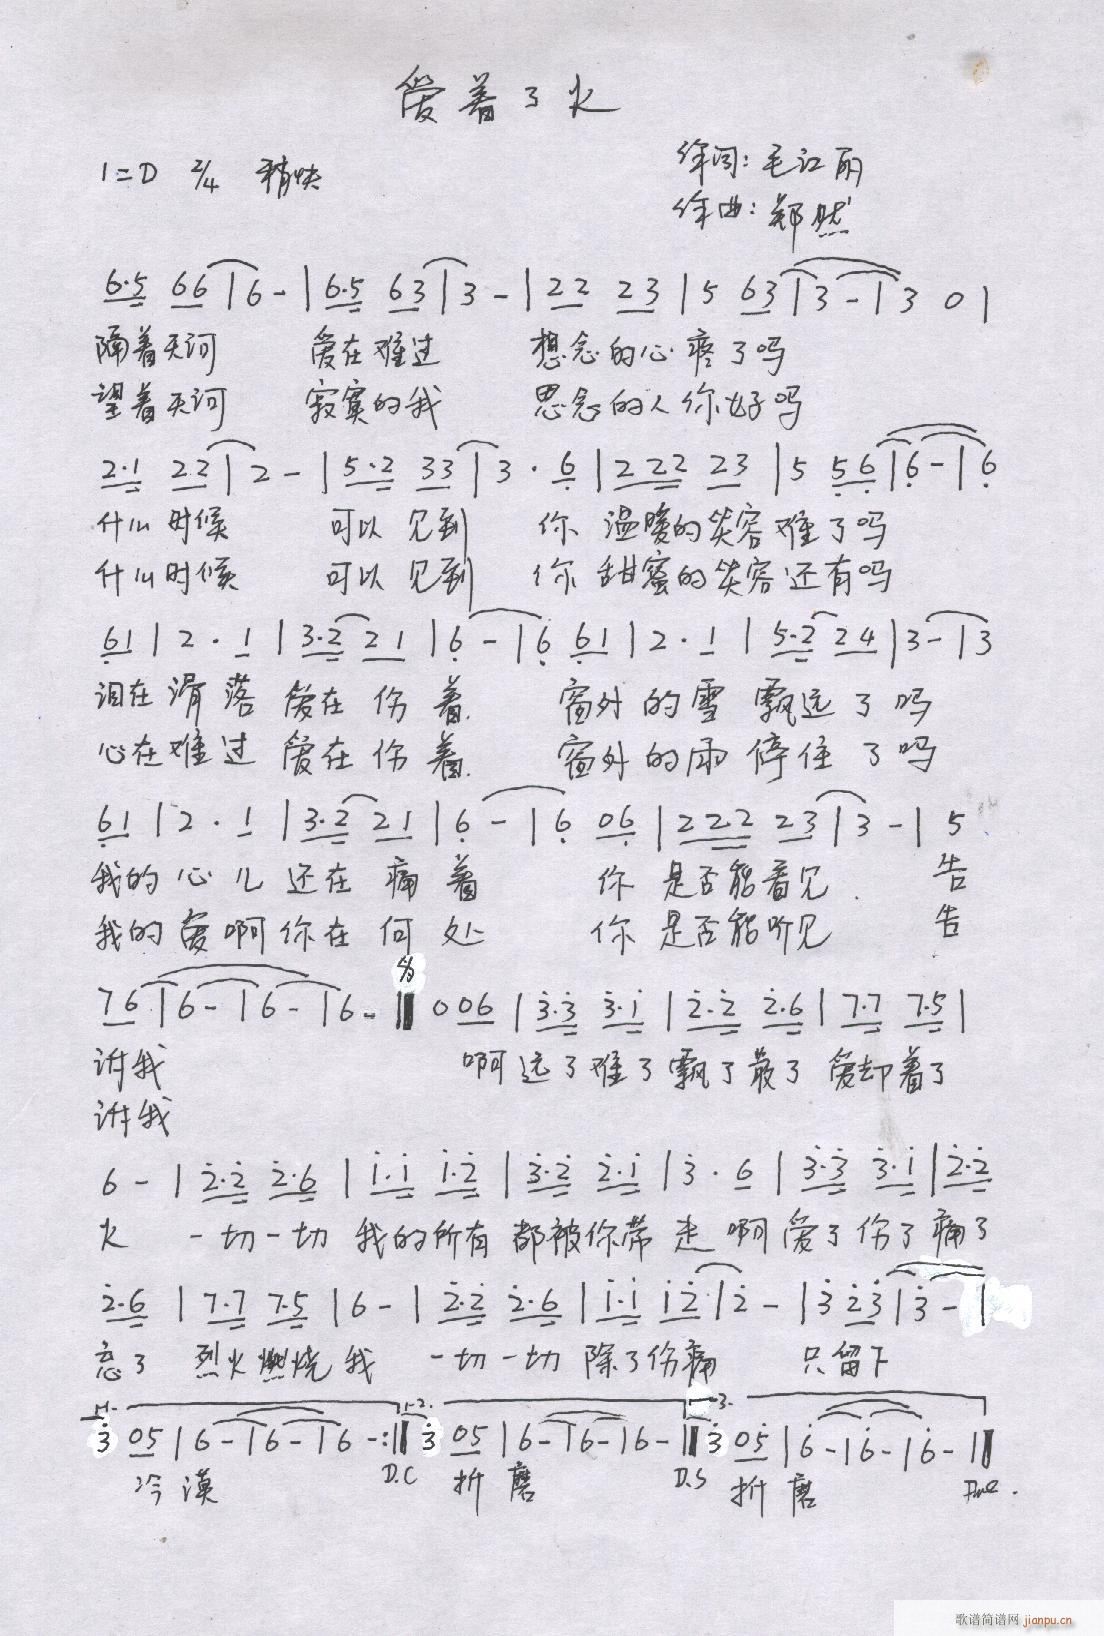 爱着了火
1=D 2/4 稍快
作词：毛江丽
作曲：郑然
6·5 66 | 6 - | 6·5 63 | 3 - | 22 23 | 5 63 | 3 - | 3 0 |
隔着天河 爱在难过 想念的心疼了吗
望着天河 寂寞的我 思念的人你好吗
2·1 22 | 2 - | 5·2 33 | 3 · 6 | 2 22 23 | 5 56 | 6 - | 6
什么时候 可以见到 你温暖的笑容难了吗
什么时候 可以见到 你甜蜜的笑容还有吗
61 | 2 · 1 | 3·2 21 | 6 - | 6 61 | 2 · 1 | 5·2 24 | 3 - | 3
泪在滑落 爱在伤着 窗外的雪飘远了吗
心在难过 爱在伤着 窗外的雨停住了吗
61 | 2 · 1 | 3·2 21 | 6 - | 6 06 | 2 22·2 23 | 3 - | 5
我的心儿还在痛着 你是否能看见 告
我的爱啊你在何处 你是否能听见 告
76 | 6 - | 6 - | 6 - || 0 06 | 3·3 3·1 | 2·2 2·6 | 7·7 7·5 |
诉我 啊远了难了飘了散了爱却着了
诉我
6 - | 2·2 2·6 | 1·1 1·2 | 3·2 2·1 | 3 · 6 | 3·3 3·1 | 2·2
火 一切一切 我的所有都被你带走 啊爱了伤了痛了
2·6 | 7·7 7·5 | 6 - | 2·2 2·6 | 1·1 12 | 2 - | 3 23 | 3 - |
忘了 烈火燃烧我 一切一切除了伤痛 只留下
3 05 | 6 - | 6 - | 6 - :|| 3 05 | 6 - | 6 - | 6 - || 3 05 | 6 - | 6 - | 6 - ||
冷漠 D.C 折磨 D.S 折磨 Fine.
歌谱简谱网 jianpu.cn